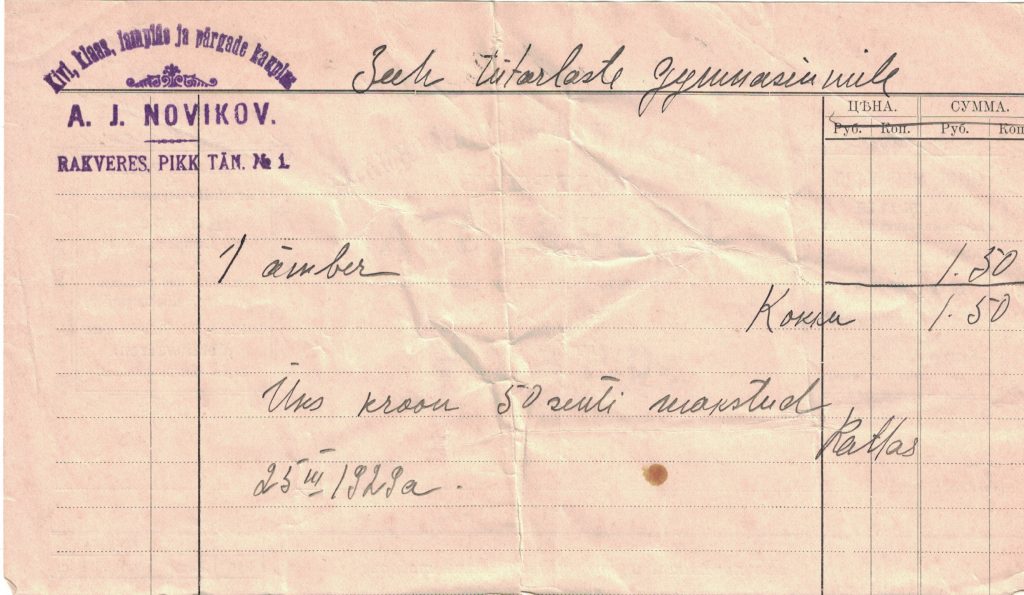 Kivi, klaas, lampide ja värgade kauplus
Zeeh tütarlaste Gymnasiumile
A. J. NOVIKOV.
ЦѢНА. СУММА.
Руб. Коп. Руб. Коп
RAKVERES, PIKK TÄN. № 1.
1 ämber 1.50
Kokku 1.50
Üks kroon 50 senti makstud
Kattas
25 III 1929a.